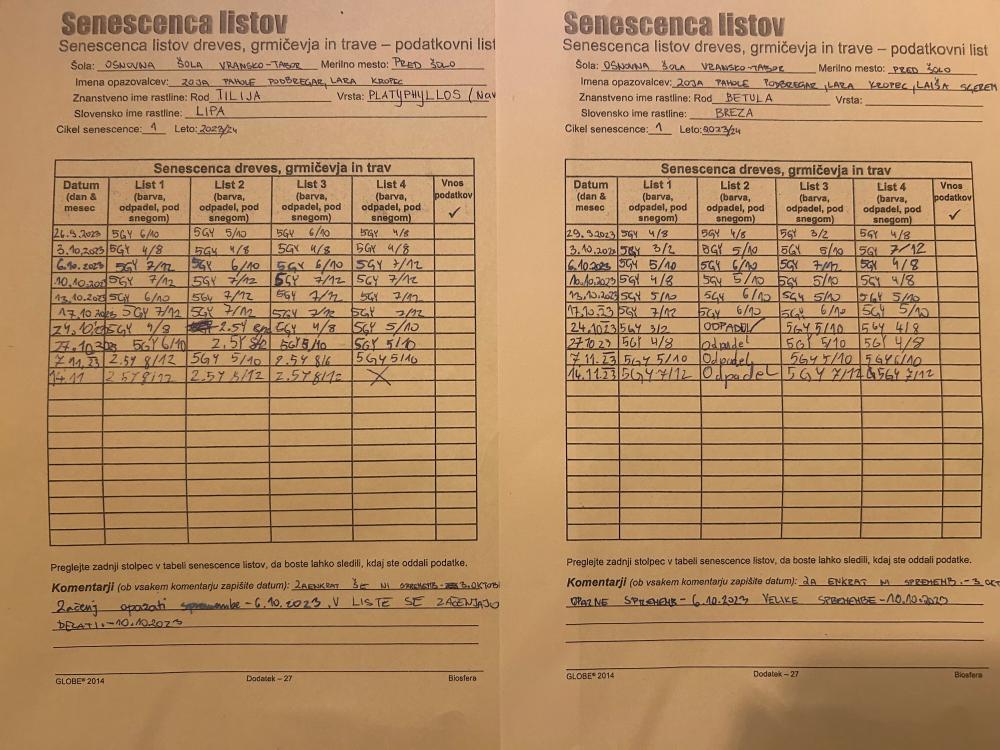 Senescenca listov
Senescenca listov dreves, grmičevja in trave – podatkovni list
Šola: OSNOVNA ŠOLA VRANSKO-TABOR Merilno mesto: PRED ŠOLO
Imena opazovalcev: ZOJA PAHOLE PODBREGAR, LARA KROPEC
Znanstveno ime rastline: Rod TILIJA Vrsta: PLATYPHYLLOS (Nav
Slovensko ime rastline: LIPA
Cikel senescence: 1 Leto: 2023/24
Senescenca dreves, grmičevja in trav
Datum (dan & mesec List 1 (barva, odpadel, pod snegom) List 2 (barva, odpadel, pod snegom) List 3 (barva, odpadel, pod snegom) List 4 (barva, odpadel, pod snegom) Vnos podatkov ✓
26.9.2023 5GY 6/10 5GY 5/10 5GY 6/10 5GY 4/8
3.10.2023 5GY 4/8 5GY 4/8 5GY 4/8 5GY 4/8
6.10.2023 5GY 7/12 5GY 6/10 5GY 6/10 5GY 7/12
10.10.2023 5GY 7/12 5GY 7/12 5GY 7/12 5GY 7/12
13.10.2023 5GY 6/10 5GY 7/12 5GY 7/12 5GY 7/12
17.10.2023 5GY 7/12 5GY 7/12 5GY 7/12 5GY 7/12
24.10 5GY 4/8 2.5Y 5GY 4/8 5GY 5/10
27.10.2023 5GY 6/10 2.5Y 5GY 5/10 5GY 5/10
7.11.23 2.5Y 8/12 5GY 5/10 2.5Y 8/6 5GY 5/10
14.11 2.5Y 8/12 2.5Y 8/12 2.5Y 8/12 X
Preglejte zadnji stolpec v tabeli senescence listov, da boste lahko sledili, kdaj ste oddali podatke.
Komentarji (ob vsakem komentarju zapišite datum): ZAENKRAT ŠE NI SPREMEMB- 3.OKTOBI
Začenj opazati - 6.10.2023, V LISTE SE ZAČENJAJO
DELATI.-10.10.2023
GLOBE® 2014 Dodatek – 27 Biosfera
Senescenca listov
Senescenca listov dreves, grmičevja in trave – podatkovni list
Šola: OSNOVNA ŠOLA VRANSKO-TABOR Merilno mesto: PRED ŠOLO
Imena opazovalcev: ZOJA PAHOLE PODBREGAR, LARA KROPEC,
Znanstveno ime rastline: Rod BETULA Vrsta:
Slovensko ime rastline: BREZA
Cikel senescence: 1 Leto: 2023/24
Senescenca dreves, grmičevja in trav
Datum (dan & mesec List 1 (barva, odpadel, pod snegom) List 2 (barva, odpadel, pod snegom) List 3 (barva, odpadel, pod snegom) List 4 (barva, odpadel, pod snegom) Vnos podatkov ✓
29.9.2023 5GY 4/8 5GY 4/8 5GY 3/2 5GY 4/8
3.10.2023 5GY 3/2 5GY 5/10 5GY 5/10 5GY 7/12
6.10.2023 5GY 5/10 5GY 6/10 5GY 7/12 5GY 4/8
10.10.2023 5GY 4/8 5GY 5/10 5GY 5/10 5GY 4/8
13.10.2023 5GY 5/10 5GY 6/10 5GY 5/10 5GY 5/10
17.10.23 5GY 7/12 5GY 6/10 5GY 6/10 5GY 5/10
24.10.23 5GY 3/2 ODPADEL 5GY 5/10 5GY 4/8
27.10.23 5GY 4/8 Odpadel 5GY 5/10 5GY 4/8
7.11.23 5GY 5/10 Odpadel 5GY 5/10 5GY 6/10
14.11.23 5GY 7/12 Odpadel 5GY 7/12 5GY 7/12
Preglejte zadnji stolpec v tabeli senescence listov, da boste lahko sledili, kdaj ste oddali podatke.
Komentarji (ob vsakem komentarju zapišite datum): ZA ENKRAT NI SPREMEMB.-3.OKT
OPAZNE SPREMEMB-6.10.2023 VELIKE SPREMEMBE-10.10.2023
GLOBE® 2014 Dodatek – 27 Biosfera